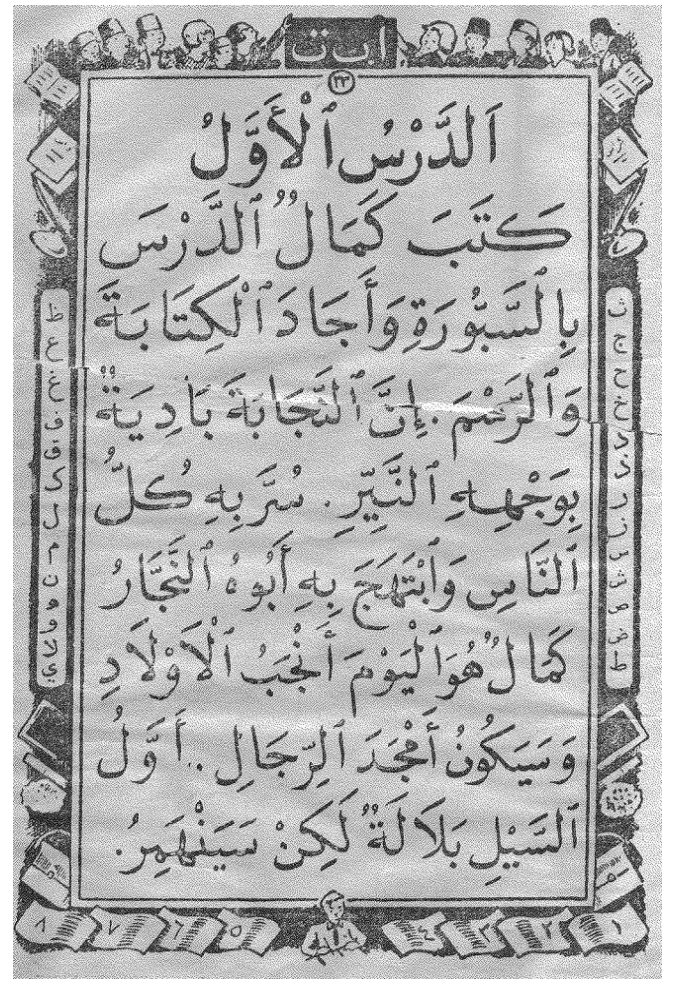 أ ب ت
٢٣
اَلدَّرْسُ ٱلْأَوَّلُ
كَتَبَ كَمَالٌ ٱلدَّرْسَ
بِٱلسَّبُّورَةِ وَأَجَادَ ٱلْكِتَابَةَ
وَٱلرَّسْمَ. إِنَّ ٱلنَّجَابَةَ بَادِيَةٌ
بِوَجْهِهِ ٱلنَّيِّرِ. سُرَّ بِهِ كُلُّ
ٱلنَّاسِ وَٱبْتَهَجَ بِهِ أَبُوهُ ٱلنَّجَّارُ
كَمَالٌ هُوَ ٱلْيَوْمَ أَنْجَبُ ٱلْاَوْلَادِ
وَسَيَكُونُ أَمْجَدَ ٱلرِّجَالِ.. أَوَّلُ
ٱلسَّيْلِ بَلَالَةٌ لَكِنْ سَيَنْهَمِرُ.
١ ٢ ٣ ٤ ٥ ٦ ٧ ٨